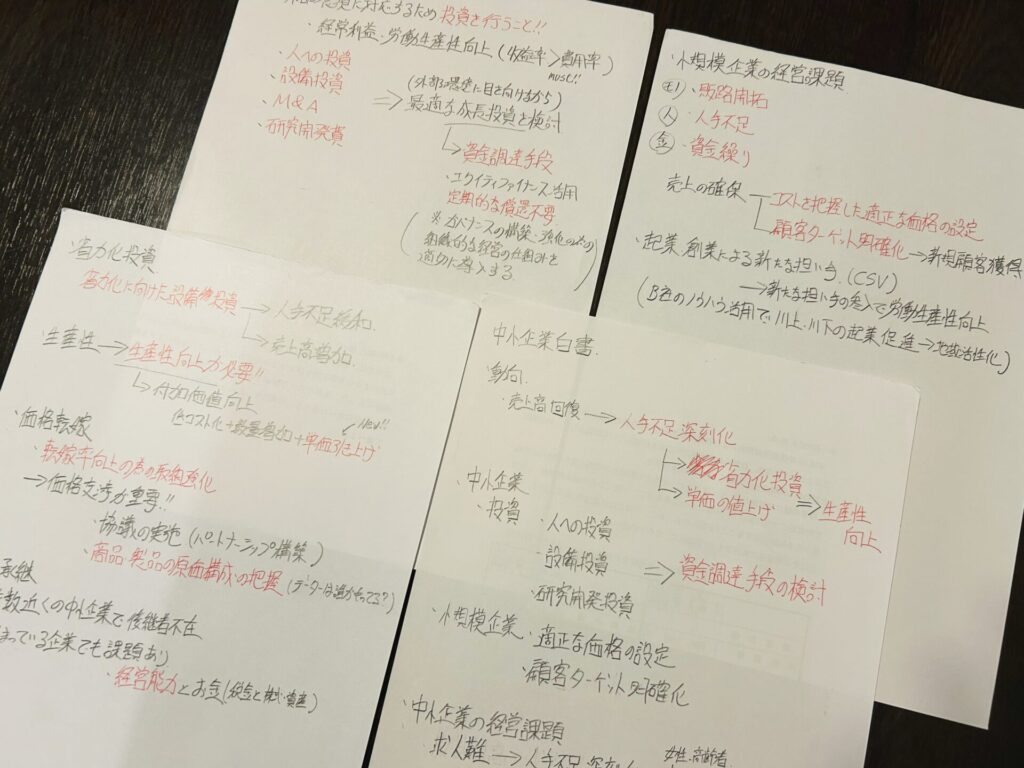 に対応するため投資を行うこと!!
・経常利益・労働生産性向上(収益率>費用率)
must!!
・人への投資
・設備投資
・M&A
・研究開発費
(外部環境に目を向けながら)
⇒最適な成長投資を検討
↳資金調達手段
・エクイティファイナンス活用
定期的な償還不要
※ガバナンスの構築・強化の為の
組織的な経営の仕組みを
適切に導入する
・小規模企業の経営課題
・販路開拓
人・人手不足
金・資金繰り
売上の確保
コストを把握した適正な価格の設定
顧客ターゲット明確化→新規顧客獲得
・起業、創業による新たな担い手(CSV)
→新たな担い手の参入で労働生産性向上
(B社のノウハウ活用で川上、川下の起業促進→地域活性化)
・省力化投資
省力化に向けた設備投資
→人手不足緩和
→売上高増加
・生産性→生産性向上が必要!!
↳付加価値向上
低コスト化+数量増加+単価引上げ
New!!
・価格転嫁
・転嫁率向上の為の取組強化
→価格交渉が重要!!
・協議の実施(パートナーシップ構築)
・商品・製品の原価構成の把握(データーは誰がもってる?)
承継
数近くの中小企業で後継者不在
まっている企業でも課題あり)
・経営能力とお金(税金と株式・資産)
中小企業白書
・動向
・売上高回復→人手不足深刻化
→省力化投資
→単価の値上げ
⇒生産性
向上
・中小企業
・投資
・人への投資
・設備投資
・研究開発投資
⇒資金調達手段の検討
・小規模企業・適正な価格の設定
・顧客ターゲット明確化
・中小企業の経営課題
求人難→人手不足深刻
女性、高齢者